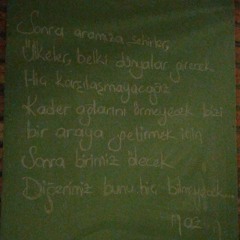 Sonra aramıza şehirler,
Ülkeler, belki dünyalar girecek
Hiç karşılaşmayacağız
Kader ağlarını örmeyecek bizi
bir araya getirmek için
Sonra birimiz ölecek
Diğerimiz bunu hiç bilmeyecek